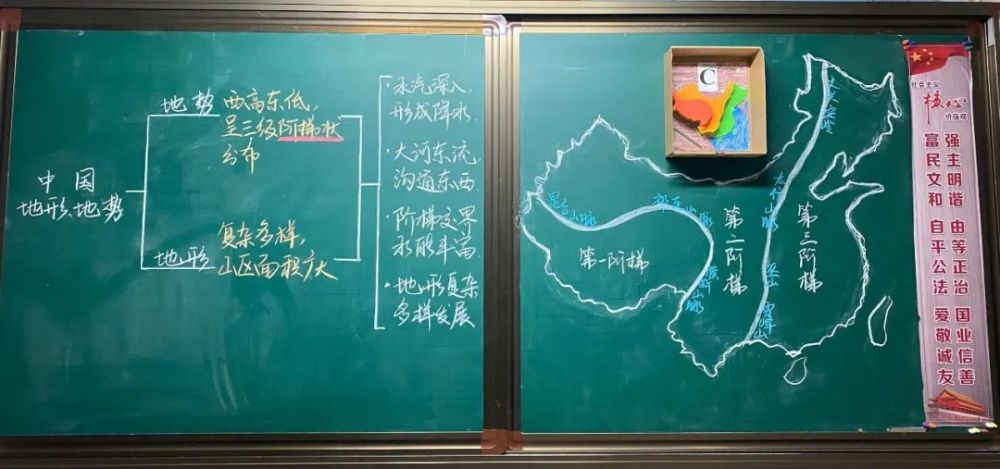 中国
地形、地势
地势
西高东低,
呈三级阶梯状
分布
地形
复杂多样,
山区面积广大
·水汽深入,
形成降水.
·大河东流,
沟通东西.
·阶梯交界
水能丰富.
·地形复杂
多样发展
C
昆仑山脉
祁连山脉
横断山脉
大兴安岭
太行山脉
巫山
雪峰山
第一阶梯
第二阶梯
第三阶梯
社会主义
核心
价值观
富强
民主
文明
和谐
自由
平等
公正
法治
爱国
敬业
诚信
友善